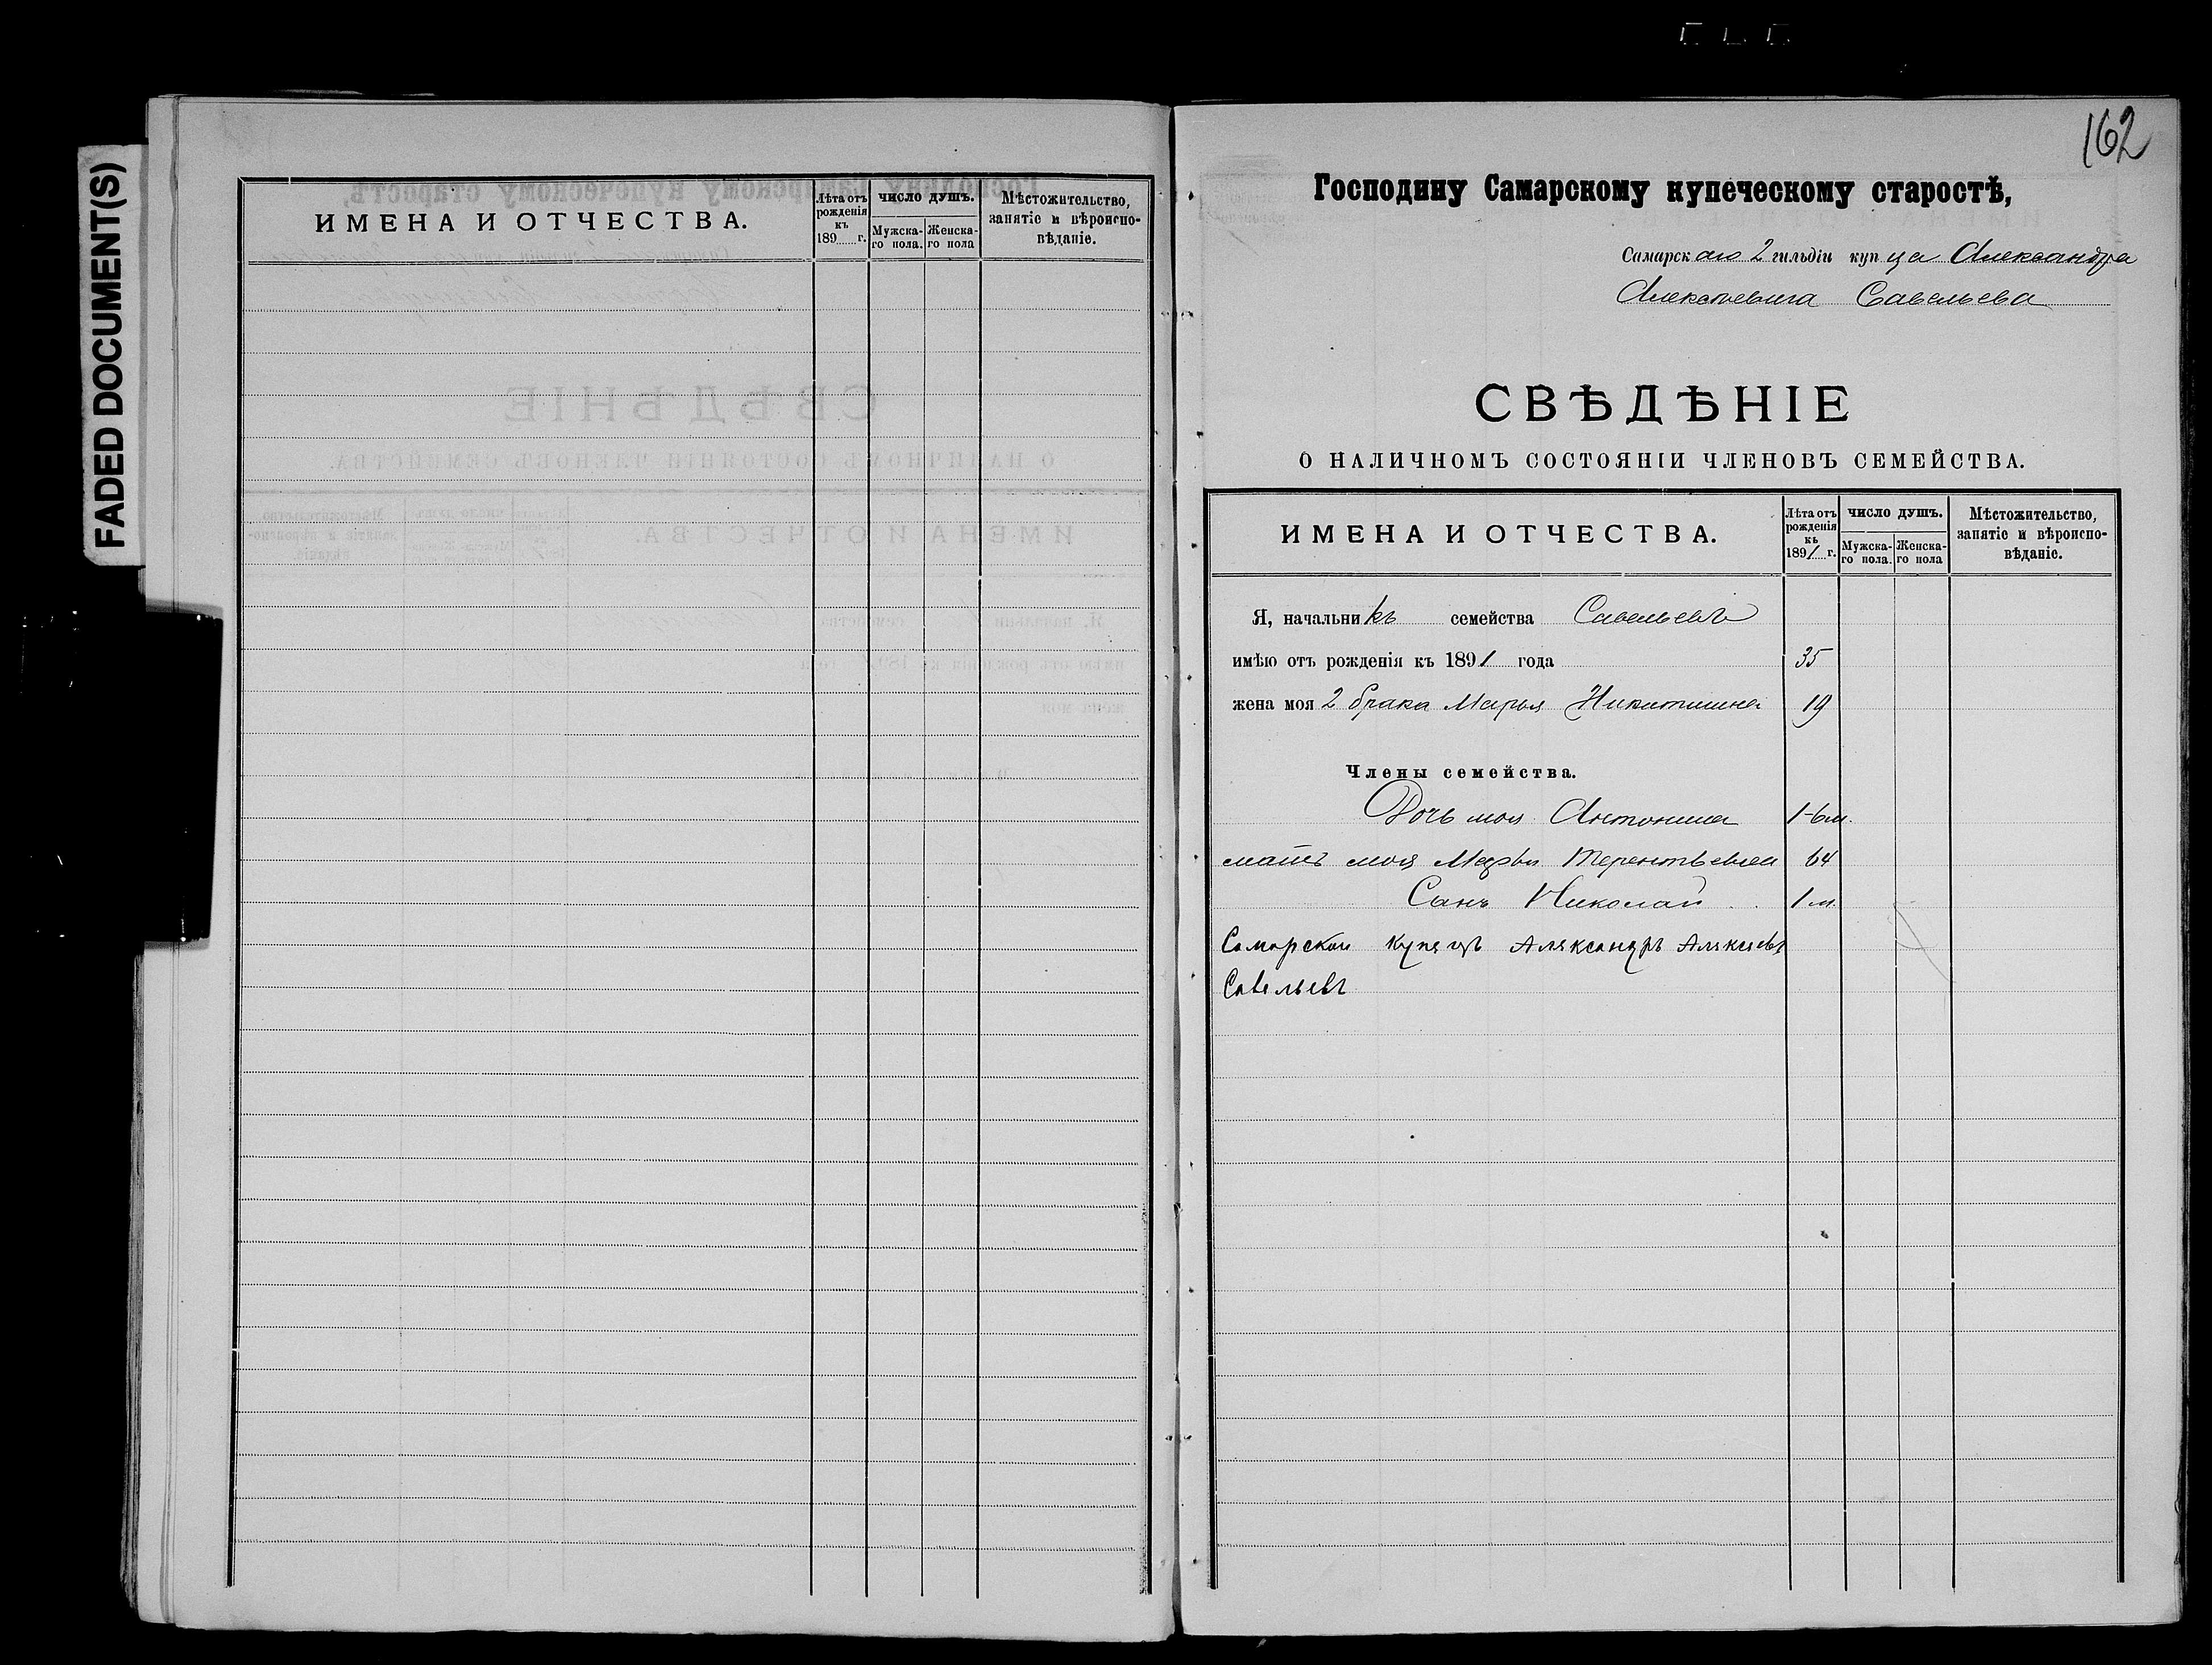 FADED DOCUMENT(S)
ИМЕНА И ОТЧЕСТВА.
Лѣта отъ рожденія къ 189 г.
ЧИСЛО ДУШЪ.
Мужска-го пола.
Женска-го пола
Мѣстожительство, занятіе и вѣроиспо-вѣданіе.
162
Господину Самарскому купеческому старостѣ,
Самарскаго 2 гильдіи купца Александра
Алексѣевича Савельева
СВѢДѢНІЕ
О НАЛИЧНОМЪ СОСТОЯНІИ ЧЛЕНОВЪ СЕМЕЙСТВА.
ИМЕНА И ОТЧЕСТВА.
Лѣта отъ рожденія къ 1891 г.
ЧИСЛО ДУШЪ.
Мужска-го пола.
Женска-го пола
Мѣстожительство, занятіе и вѣроиспо-вѣданіе.
Я, начальникъ семейства Савельевъ
имѣю отъ рожденія къ 1891 года 35
жена моя 2 брака Марья Никитишна 19
Члены семейства.
Дочь моя Антонина 1-6м.
мать моя Марья Терентьевна 64
Сынъ Николай 1 м.
Самарской купяцъ Аляксандръ Аляксѣевъ
Савельевъ